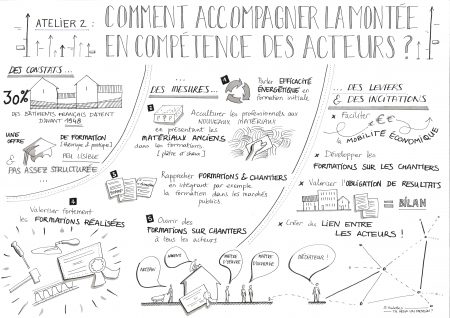 ATELIER 2 :
COMMENT ACCOMPAGNER LA MONTÉE
EN COMPÉTENCE DES ACTEURS ?
DES CONSTATS ...
30%
DES BÂTIMENTS FRANÇAIS DATENT
D'AVANT 1948
UNE
OFFRE
DE FORMATION
[théorique & pratique]
PEU LISIBLE
& PAS ASSEZ STRUCTURÉE ...
DES MESURES...
1
Parler EFFICACITÉ
ÉNERGÉTIQUE en
formation initiale
2
Acculturer les professionnels aux
NOUVEAUX MATÉRIAUX
en présentant les
MATÉRIAUX ANCIENS
dans les formations.
[plâtre et chaux]
3
Rapprocher FORMATIONS & CHANTIERS
en intégrant par exemple
la formation dans les marchés
publics.
4
Valoriser fortement
les FORMATIONS RÉALISÉES
5
Ouvrir des
FORMATIONS SUR CHANTIERS
à tous les acteurs
ARTISAN
HABITANT
MAÎTRE
D'ŒUVRE
MAÎTRE
D'OUVRAGE
MÉDIATEUR !
... DES LEVIERS
& DES INCITATIONS
x Faciliter
€€
la MOBILITÉ ÉCONOMIQUE
x Développer les
FORMATIONS SUR LES CHANTIERS
x Valoriser l'OBLIGATION DE RÉSULTATS
= BILAN
x Créer du LIEN ENTRE
LES ACTEURS !